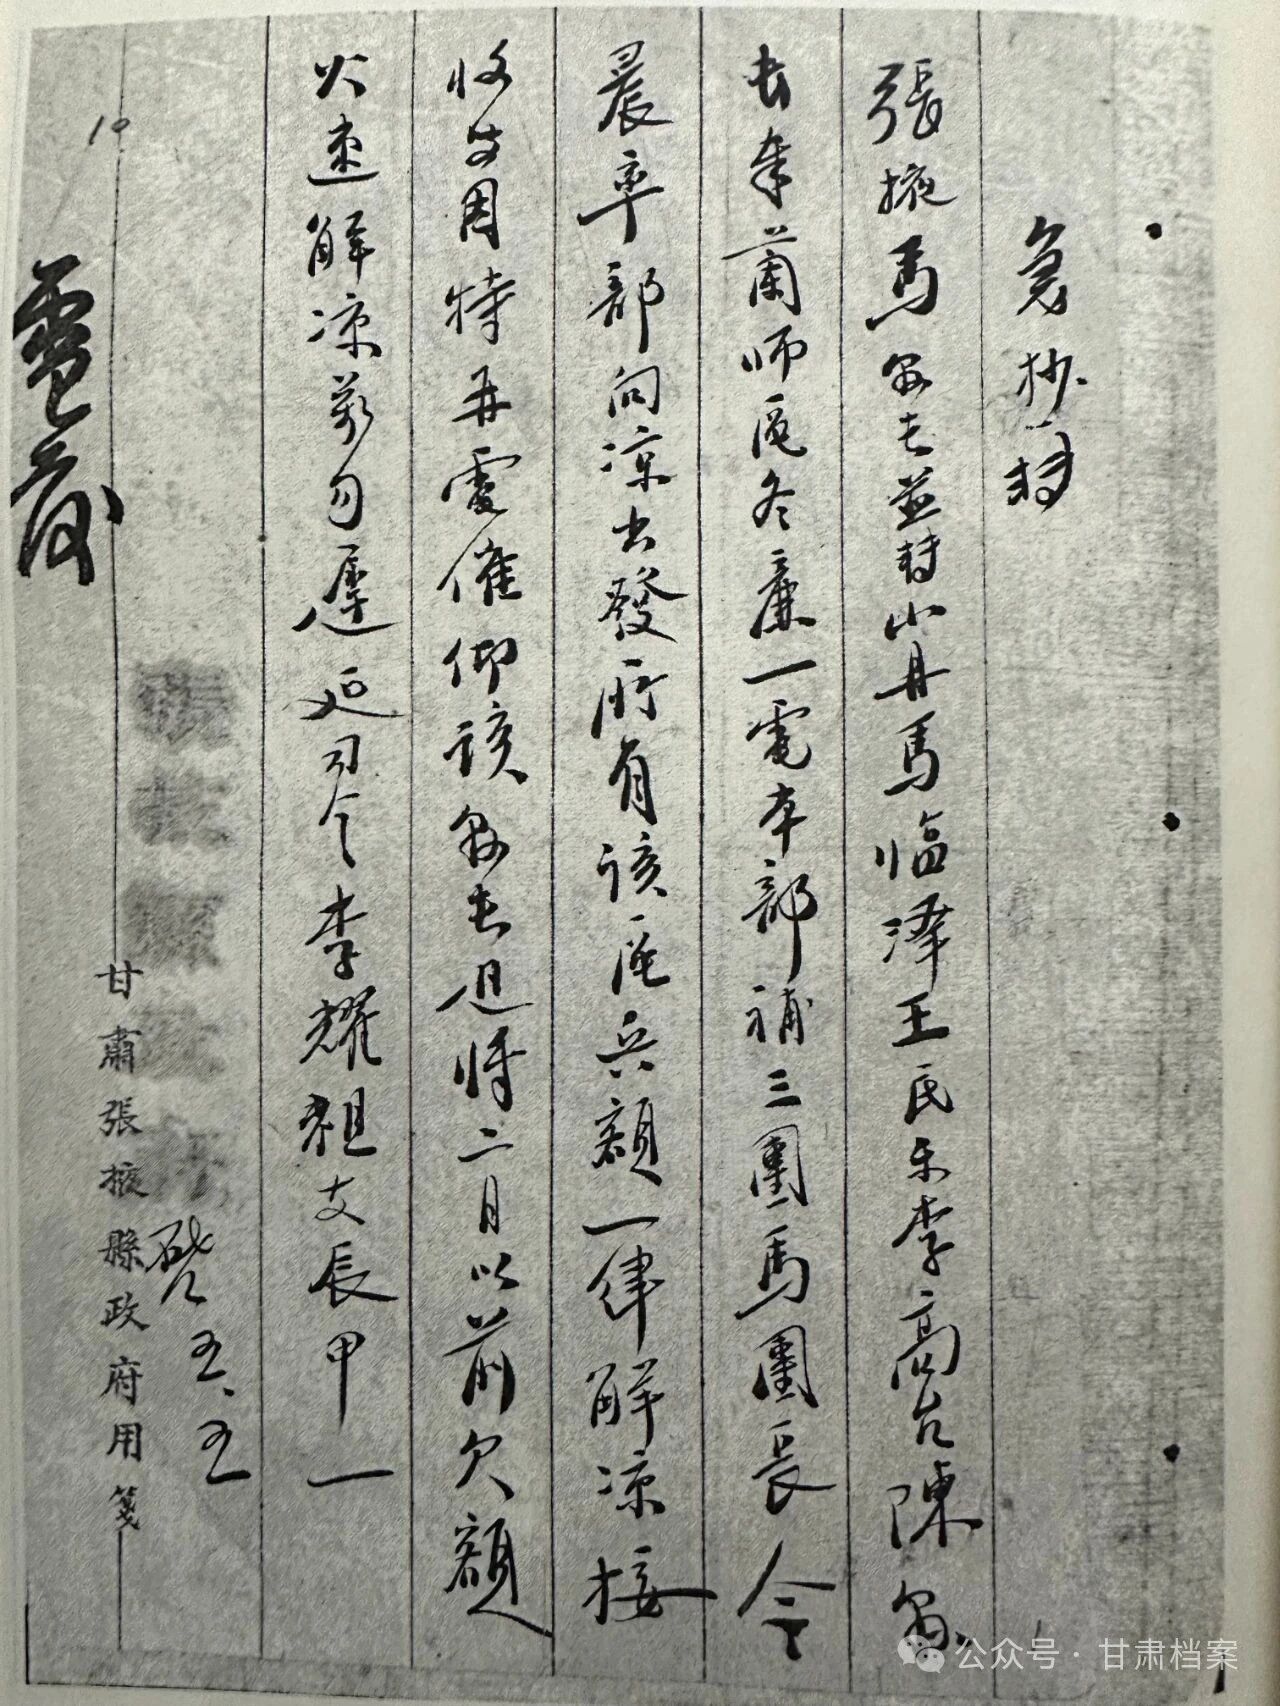 急抄轉
張掖馬縣長並轉山丹馬臨澤王民樂李高台陳縣
長奉蘭師管冬亷一電本部補三團馬團長今
晨率部向涼出發所有該管兵額一律解涼接
收等因特再電催仰該縣長迅將二月以前欠額
火速解涼萬勿遲延司令李耀祖支辰甲一
五、五
甘肅張掖縣政府用箋
公众号·甘肃档案